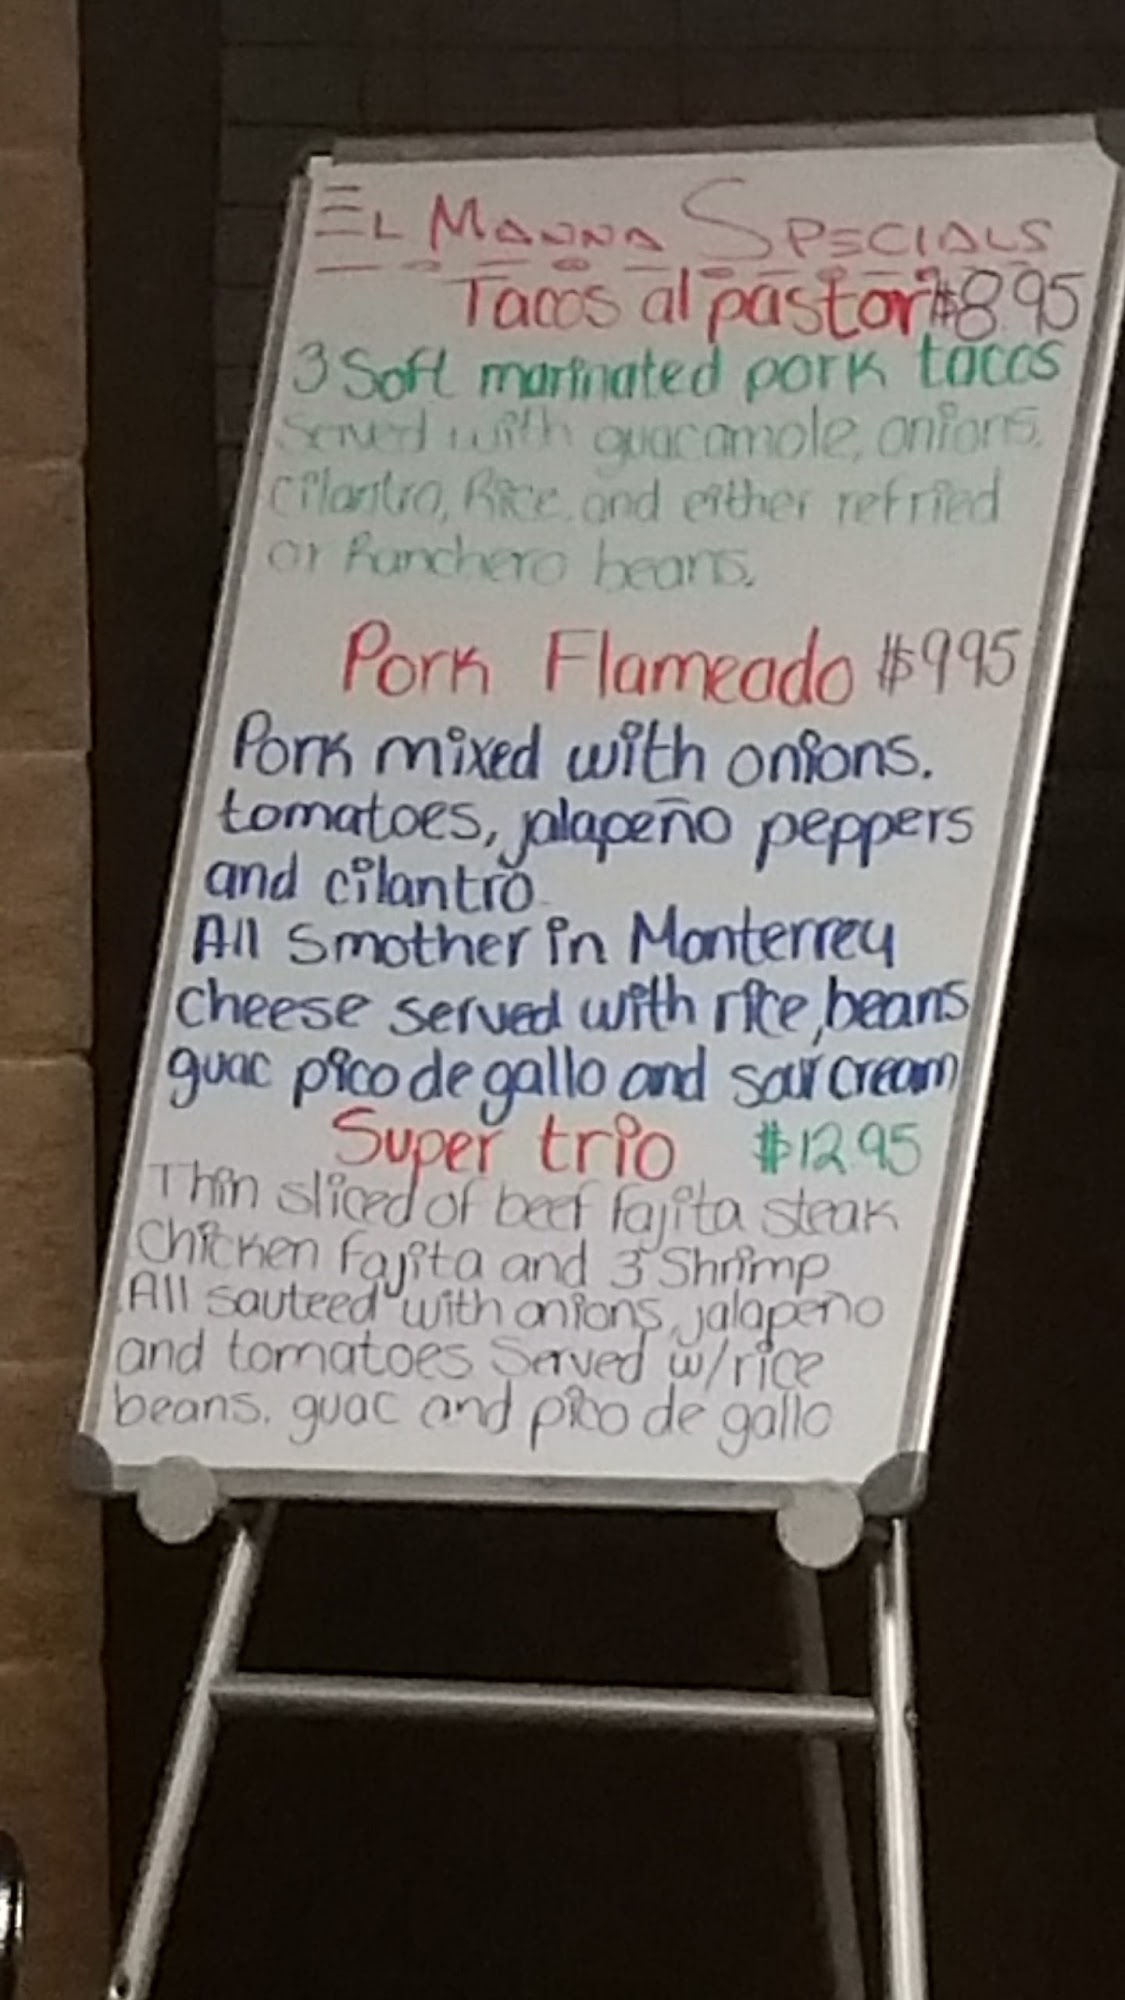 EL MANNA SPECIALS
Tacos al pastor $8.95
3 Soft marinated pork tacos
Served with guacamole, onions,
cilantro, Rice, and either refried
or Ranchero beans.
Pork Flameado $9.95
Pork mixed with onions.
tomatoes, jalapeño peppers
and cilantro
All Smother in Monterrey
cheese served with rice, beans
guac pico de gallo and sour cream
Super trio $12.95
Thin sliced of beef fajita steak
Chicken Fajita and 3 Shrimp
All sauteed with onions, jalapeño
and tomatoes Served w/rice
beans. guac and pico de gallo